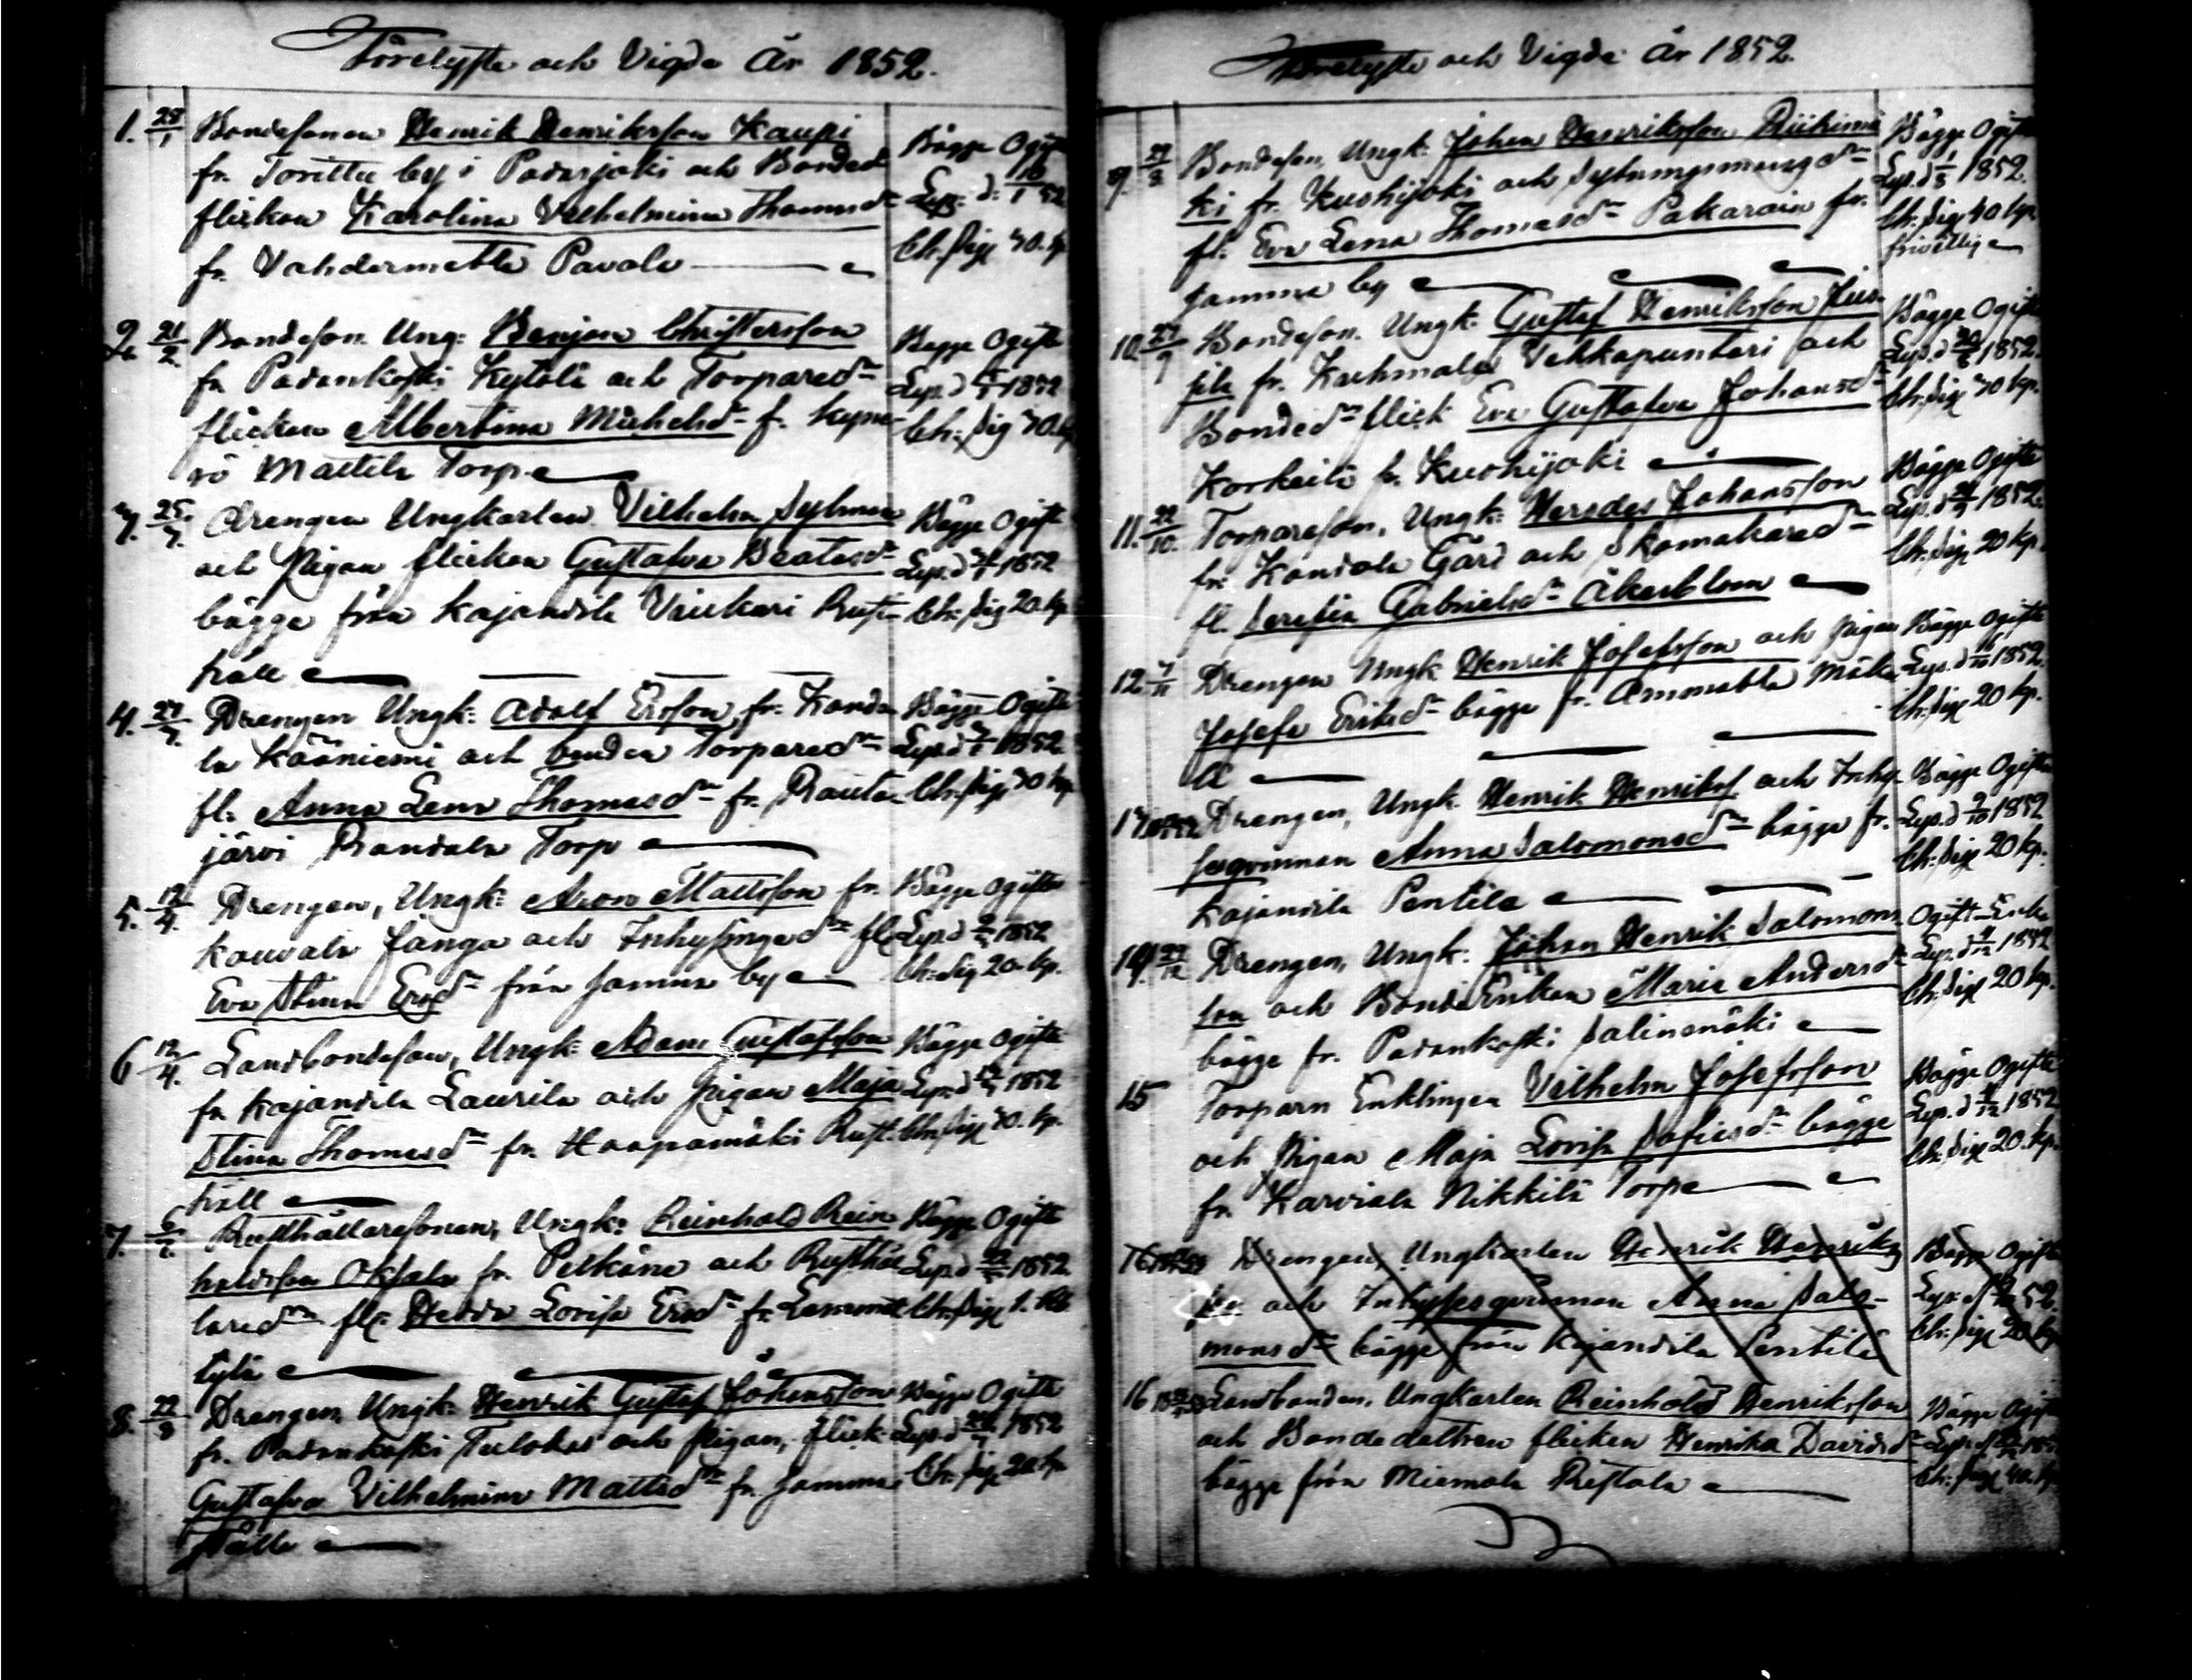 Förelyste och Vigde År 1852.
1. 28/1 Bondesonen Henrik Henriksson Kaupi
fr. Torittu by i Padasjoki och Bonded
flickan Karolina Vilhelmina Thomasdr
fr. Vahdermetta Pavola
Bägge Ogift
Lys. d. 16/1 52
Ch. Sig 30. kp
2. 21/2 Bondeson. Ung: Benjam Christersson
fr. Padankoski Kytölä och Torparedr
flickan Albertina Michelsdr f. Kyne-
rö Mattila Torp
Bägge Ogifte
Lys. d 1852
Ch: Sig 30. kp
3. 25/3. Drengen Ungkarlen Vilhelm Sylman
och Pigan flickan Gustafva Beatasdr
bägge från Kajandila Rust-
håll
Bägge Ogifte
Lys. d 1852
Ch: Sig 20 kp
4. 27/3. Drengen Ungk: Adolf Ersson, fr. Konda
la Kööniemi och Torparedr
fl: Anna Lena Thomasdr fr. Rauta-
järvi Randala Torp
Bägge Ogifte
Lys. d 1852
Ch: Sig 30 kp
5. 12/4. Drengen, Ungk: Aron Mattsson fr.
Kouvala Janga och Inhysingedr fl.
Eva Stina Ersdr från samma by
Bägge Ogifte
Lys. d 1852
Ch: Sig 20. kp.
6 12/4. Landbondeson, Ungk: Adam Gustafsson
fr Kajandila Laurila och Pigan Maja
Stina Thomasdr fr. Haapamäki Rust-
håll
Bägge Ogifte
Lys. d 1852
Ch: Sig 30. kp.
7. Rusthållaresonen, Ungk: Reinhold Rein
holdsson Oksala fr. Pelkäne och Rusthål
laredr fl: Hedda Lovisa Ersdr fr. Lemmet
tylä
Bägge Ogifte
Lys. d 1852
Ch: Sig 1. Rb
8. 22/8 Drengen Ungk: Henrik Gustaf Johansson
fr. Padankoski Tulokas och Pigan, flick
Gustafva Vilhelmina Mattsdr fr. samma
ställe
Bägge Ogifte
Lys. d 1852
Ch: Sig 20 kp
Förelyste och Vigde År 1852.
9. 22/8 Bondeson, Ungk: Johan Henriksson Riihimä
ki fr. Kuohijoki och Sytningsmansdr
fl: Eva Lena Thomasdr Pakarain fr.
samma by
Bägge Ogifte
Lys. d 1/8 1852.
Ch: Sig 40 kp.
frivillig
10. 27/9 Bondeson. Ungk: Gustaf Henriksson Jus
sila fr. Kuhmala Vehkapuntari och
Bondedr flick Eva Gustafva Johansdr
Korkeila fr. Kuohijoki
Bägge Ogifte
Lys. d 1852.
Ch: Sig 30 kp.
11. 22/10. Torpareson, Ungk: Herodes Johansson
fr. Kandola Gård och Skomakaredr
fl. Serafia Gabrielsdr Åkerblom
Bägge Ogifte
Lys. d 1852.
Ch: Sig 20 kp.
12. 7/11 Drengen Ungk Henrik Josefsson och Pigan
Josefa Eriksdr bägge fr. Ämmätta Mäke
lä
Bägge Ogifte
Lys. d 16/10 1852.
Ch: Sig 20 kp.
13. Drengen, Ungk. Henrik Henriks och Inhy
sesqvinnan Anna Salomonsdr bägge fr.
Kajandila Pentila
Bägge Ogifte
Lys. d 9/10 1852
Ch: Sig 20 kp.
14. 27/12 Drengen, Ungk: Johan Henrik Salomons
son och BondeEnkan Maria Andersdr
bägge fr. Padankoski Salinamäki
Ogift – Enka
Lys. d 4/12 1852
Ch: Sig 20 kp.
15 Torparn Enklingen Vilhelm Josefsson
och Pigan Maja Lovisa Sofiasdr bägge
fr. Karviala Nikkilä Torp
Bägge Ogifte
Lys. d 4/12 1852
Ch: Sig 20. kp.
16 Drengen, Ungkarlen Henrik Henriks
son och Inhysesqvinnan Anna Salo-
monsdr bägge från Kajandila Pentilä
Bägge Ogifte
Lys. d 52.
Ch: Sig 20 kp
16 Landbonden, Ungkarlen Reinhold Henriksson
och Bondedottren flickan Henrika Davidsdr
bägge från Miemala Prestola
Bägge Ogifte
Lys. d
Ch: Sig 40. kp